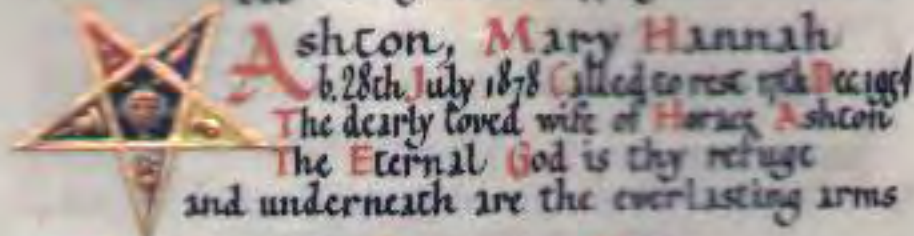 Ashton, Mary Hannah
b. 28th July 1878 Called to rest 17th Dec 1954
The dearly loved wife of Horace Ashton
The Eternal God is thy refuge
and underneath are the everlasting arms